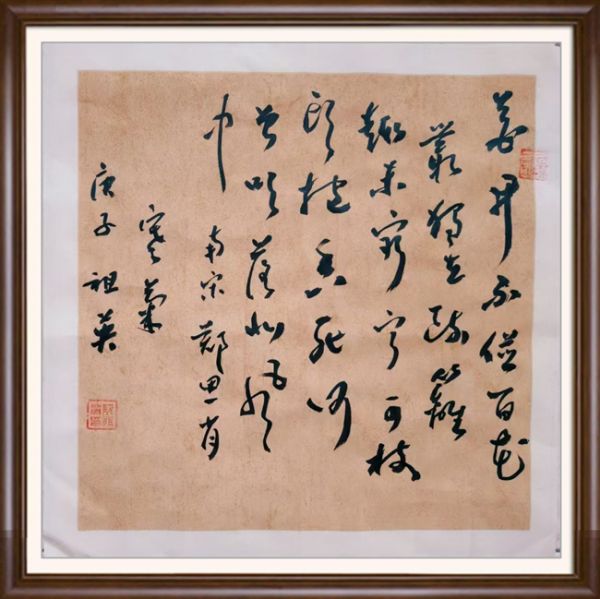 花开不併百花
叢独立疏籬
趣未穷宁可枝
頭抱香死何
曾吹落北風
中 南宋鄭思肖
寒菊
庚子 祖英